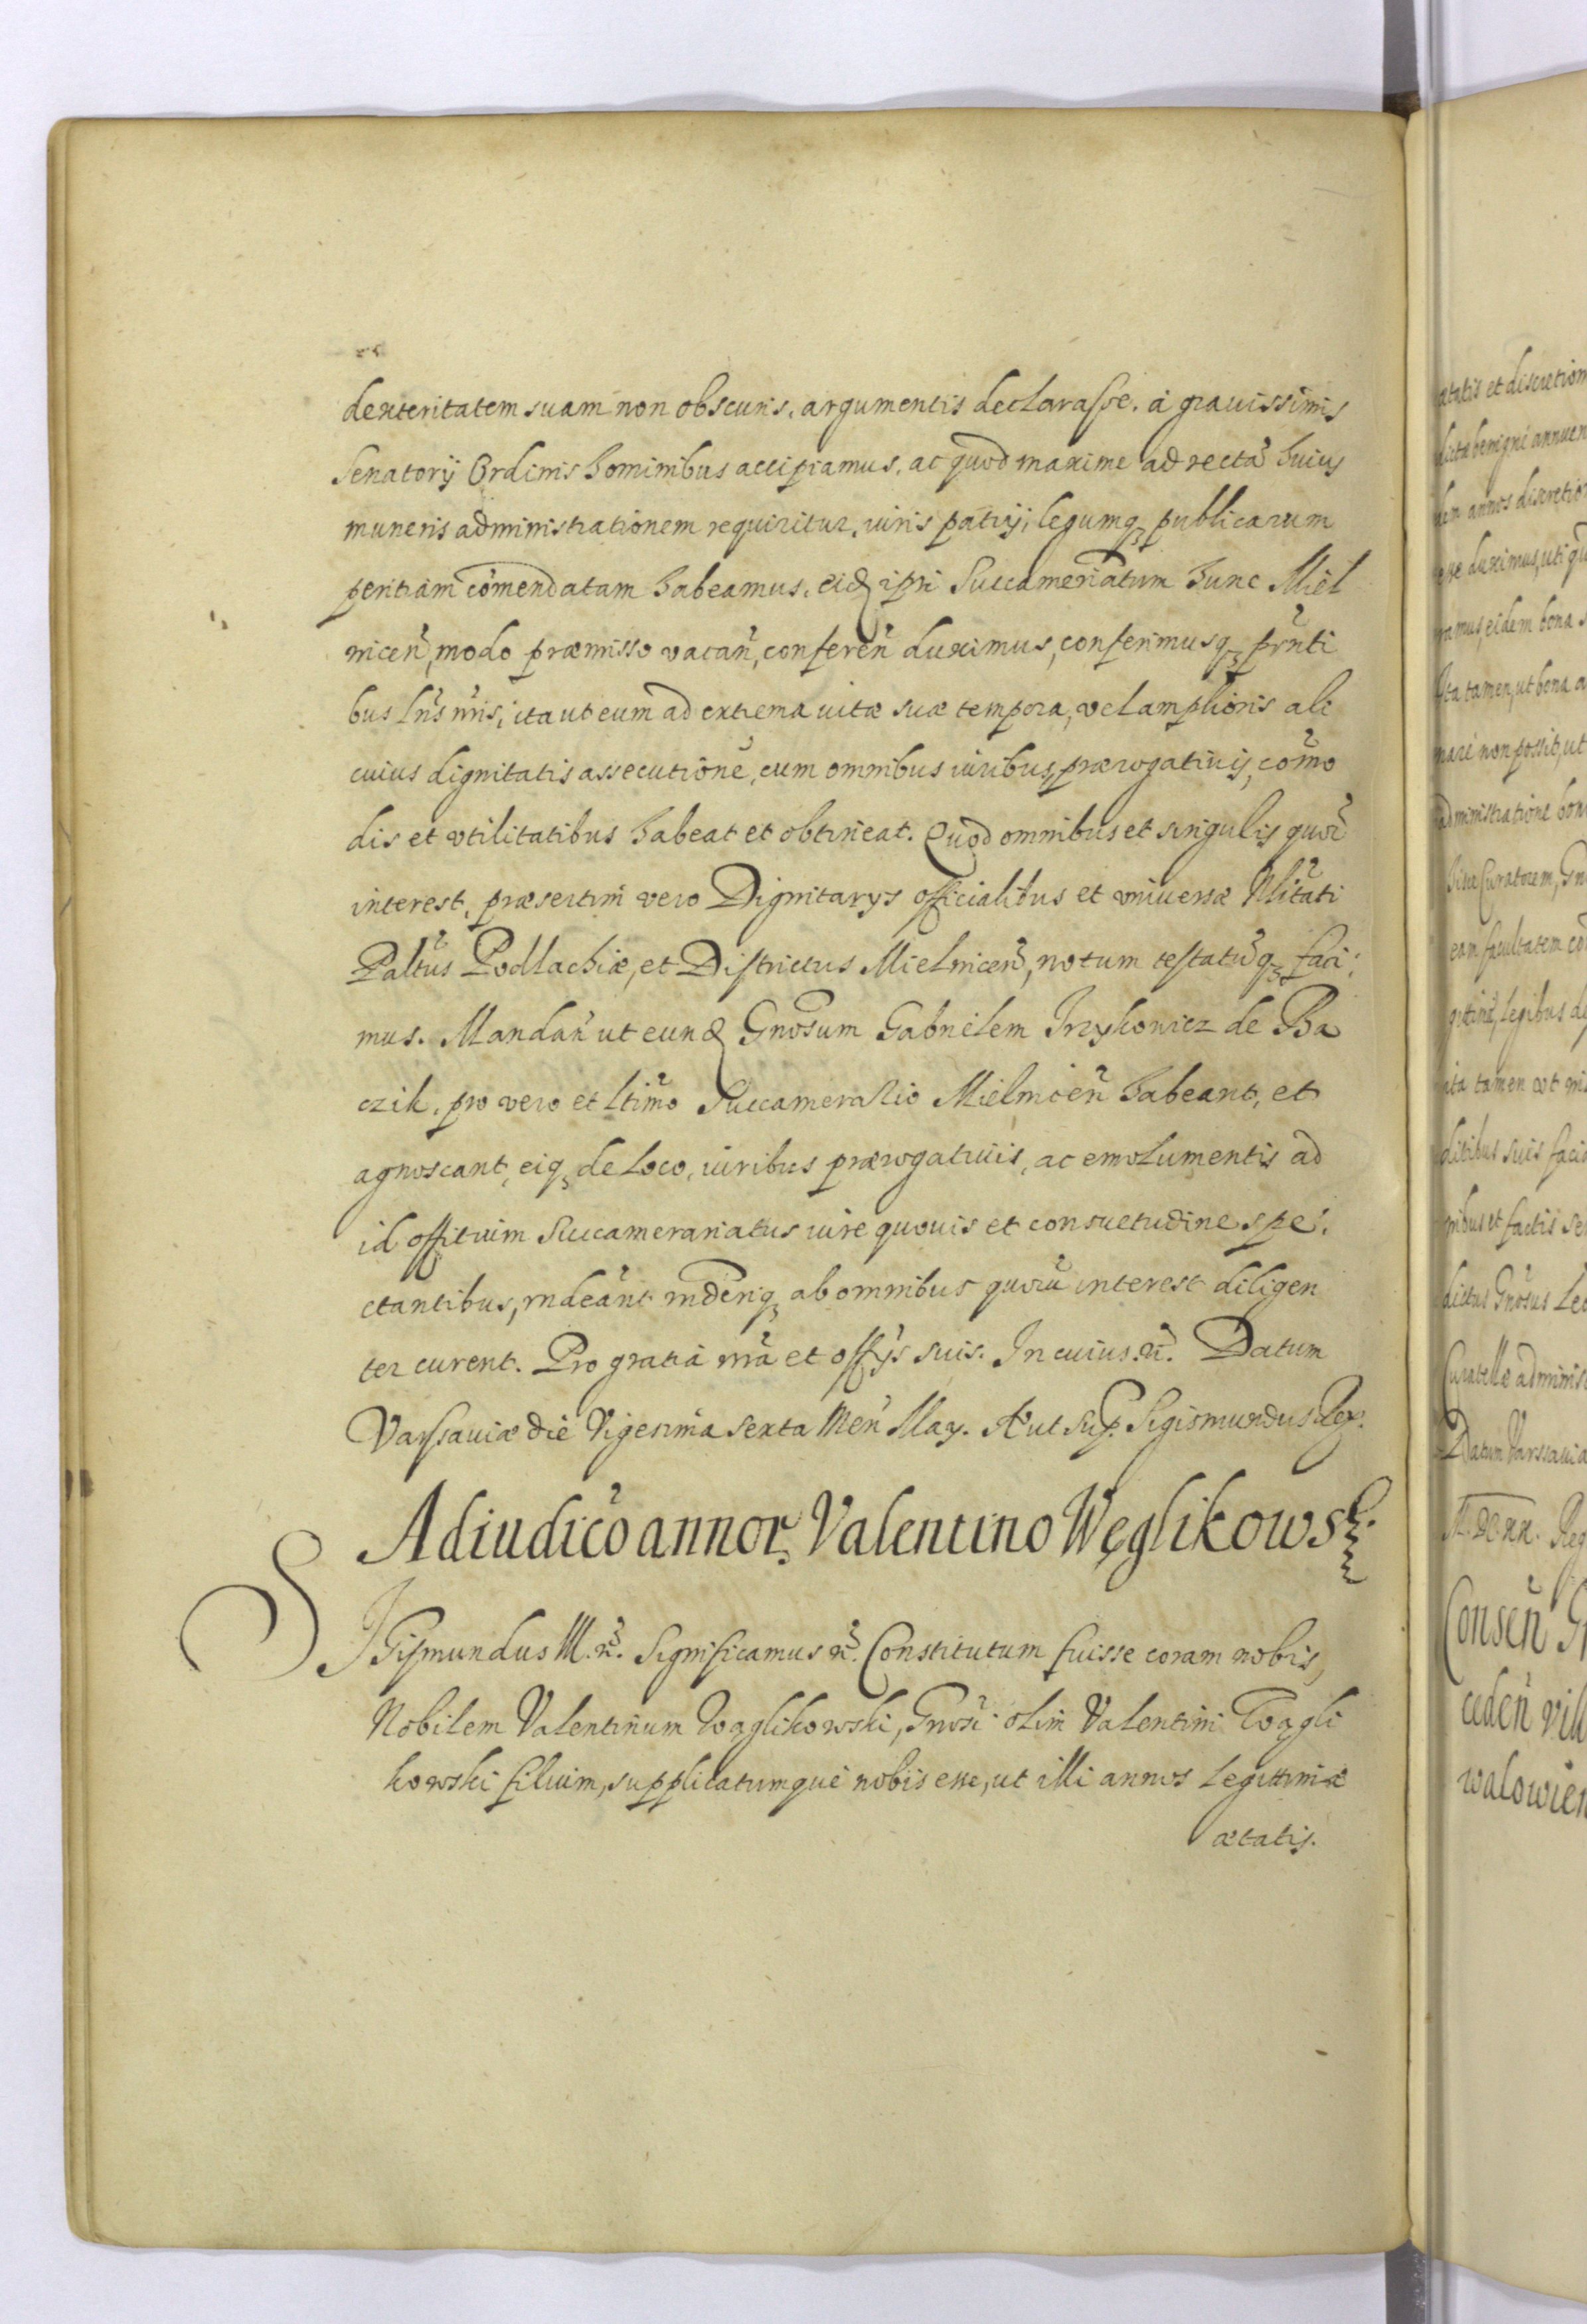 dexteritatem suam non obscuris, argumentis declarasse. à grauissimis
Senatorij Ordinis hominibus accipiamus, ac quod maxime ad rectã huius
muneris administrationem requiritur, iuris patrij, legumq₃ publicarum
peritiam cõmendatam habeamus, eid ipsi Succamerariatum hunc Miel
nicen̄, modo præmisso vacan̄, conferen̄ duximus, conferimusq₃ pr̄nti
bus Lr̄is nr̄is, ita ut eum ad extrema vitæ suæ tempora, vel amplioris ali
cuius dignitatis assecutionẽ, cum omnibus iuribus, prærogatiuis, com̃o
dis et vtilitatibus habeat et obtineat. Quod omnibus et singulis quorũ
interest, præsertim vero Dignitarys officialibus et vniuersæ Nlit̃ati
Palt̃us Podlachiæ, et Districtus Mielnicen̄, notum testatũq₃ faci:
mus. Mandan̄ ut eund Gnosum Gabrielem Irzykowicz de Ba
czik, pro vero et Lt̃imo Succamerario Mielnicen̄ habeant, et
agnoscant, eiq₃ de loco, iuribus prærogatiuis, ac emolumentis ad
id officium Succamerariatus iure quouis et consuetudine spe:
ctantibus, rn̄deant rn̄deriq₃ ab omnibus quorũ interest diligen
ter curent. Pro gratia nr̄a et offys suis. In cuius rẽ. Datum
Varsauiæ die Vigesima sexta Men̄ May. A ut sup. Sigismundus Rex.
Adiudic̃o annor. Valentino Węglikows₃.
SIGismundus III. rẽ. Significamus rẽ. Constitutum fuisse coram nobis,
Nobilem Valentinum Wąglikowski, Gnosi olim Valentini Wągli
kowski filium, supplicatumque nobis esse, ut illi annos legittimæ
ætatis.
ætatis et discretion
dicta benigne annuen
dem annos discretion
esse duximus, uti qu
ramus, eidem bona s
Ita tamen, ut bona a
nare non possit, ut
administratione bon
Curatorem, Gn
eam facultatem co
legibus d
ita tamen vt ni
ditibus suis faci
nibus et factis se
dictus Gñosus Le
Curatellæ adminis
Datum Varssauia
Reg
Consen̄ G
ceden̄ vill
walowien